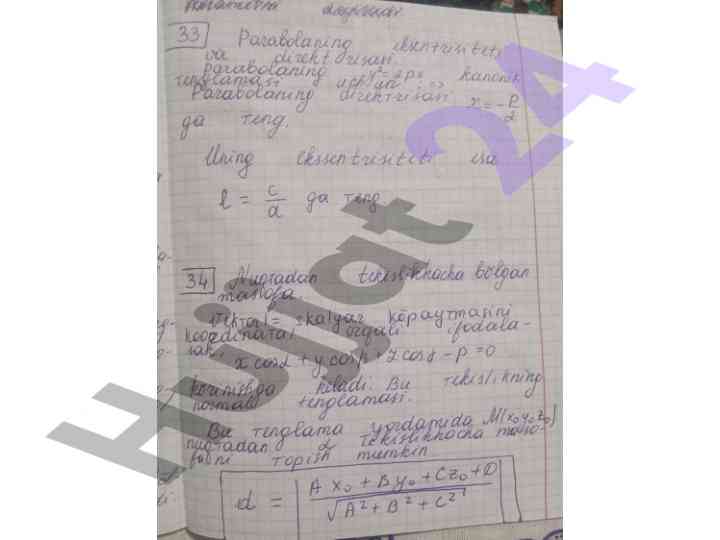 33 Parabolaning eksentrisiteti
va direktrisasi.
parabolaning y²=2px kanonik
tenglamasi
Parabolaning direktrisasi x = -p/2
ga teng.
Uning ekssentrisiteti esa
l = c/a ga teng
34 Nuqtadan tekislikkacha bolgan
masofa.
skalyar köpaytmasini
koordinatal orqali ifodala-
sak, x cosα + y cosβ + z cosγ - p = 0
korinishga keladi. Bu tekislikning
normal tenglamasi.
Bu tenglama yordamida M(x₀y₀z₀)
nuqtadan α tekislikkacha maso-
fani topish mumkin
d = |A x₀ + B y₀ + C z₀ + D / √A² + B² + C²|
Hujjat 24